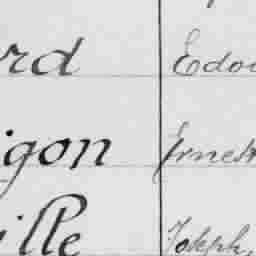 rd Edou
igon Ernest
ille Joseph,